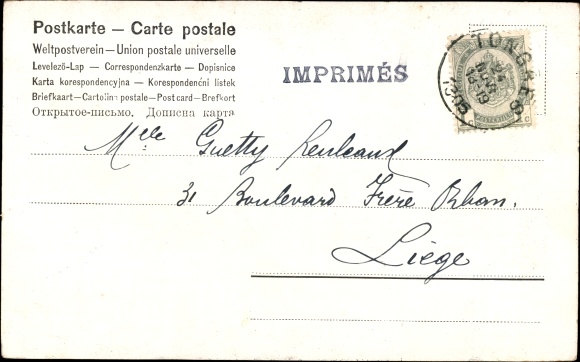 Postkarte — Carte postale
Weltpostverein — Union postale universelle
Levelező-Lap — Correspondenzkarte — Dopisnice
Karta korespondencyjna — Korespondenčni listek
Briefkaart — Cartolina postale — Post card — Brefkort
Открытое-письмо. Дописна карта
IMPRIMÉS
TONGRES
Melle Guetty
31 Boulevard Frère Orban.
Liège